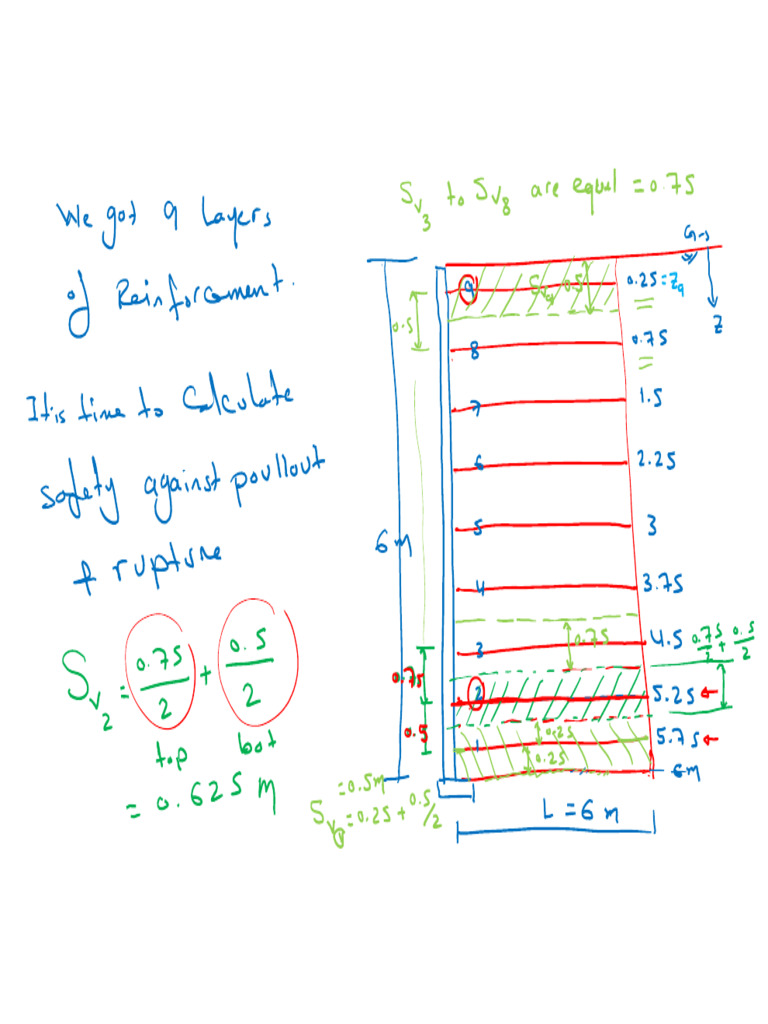 We got 9 Layers
of Reinforcement.
It is time to Calculate
safety against poullout
+ rupture
Sv2 = 0.75/2 + 0.5/2
top bot
= 0.625 m
Sv3 to Sv8 are equal = 0.75
G.S
Z
9 Sv9 0.5 0.25 = Z9
0.5
8 0.75
7 1.5
6 2.25
5 3
6 m
4 3.75
3 0.75 4.5 0.75/2 + 0.5/2
0.75
2 5.25 ←
0.5
1 0.25 5.75 ←
0.25
6m
= 0.5m
= 0.25 + 0.5/2
L = 6 m